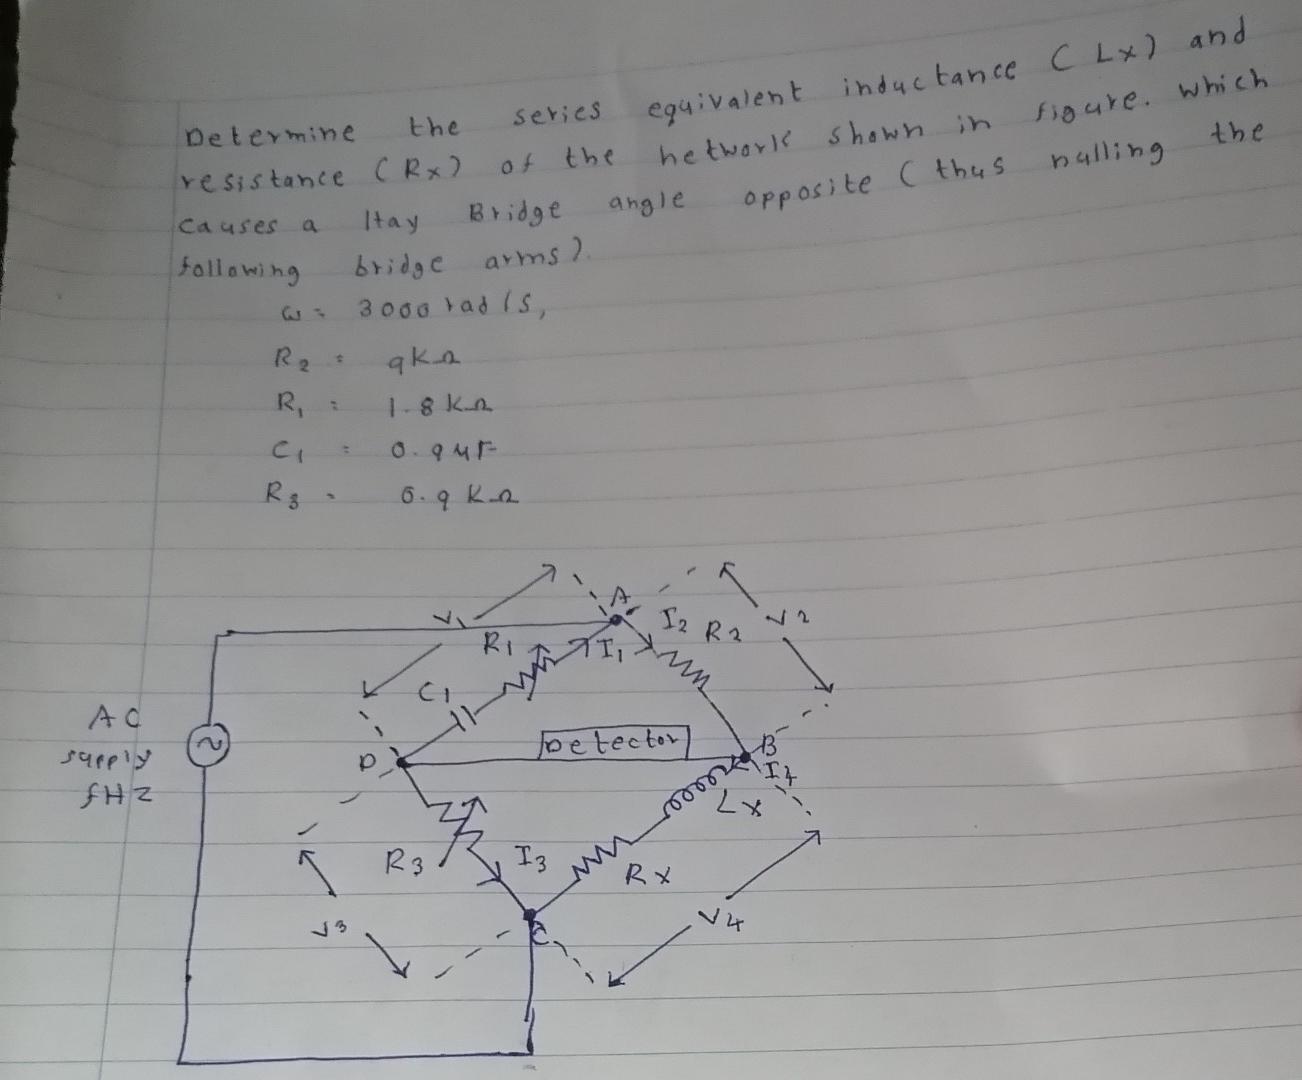 Determine the series equivalent inductance (Lx) and
resistance (Rx) of the network shown in figure. which
causes a Hay Bridge angle opposite (thus nulling the
following bridge arms).
ω = 3000 rad/s,
R2 = 9kΩ
R1 = 1.8 kΩ
C1 = 0.9 μF
R3 = 0.9 kΩ
A
V1
I2
R2
V2
R1
I1
C1
AC
supply
fHZ
Detector
D
B
I4
Lx
R3
I3
Rx
V3
V4
C